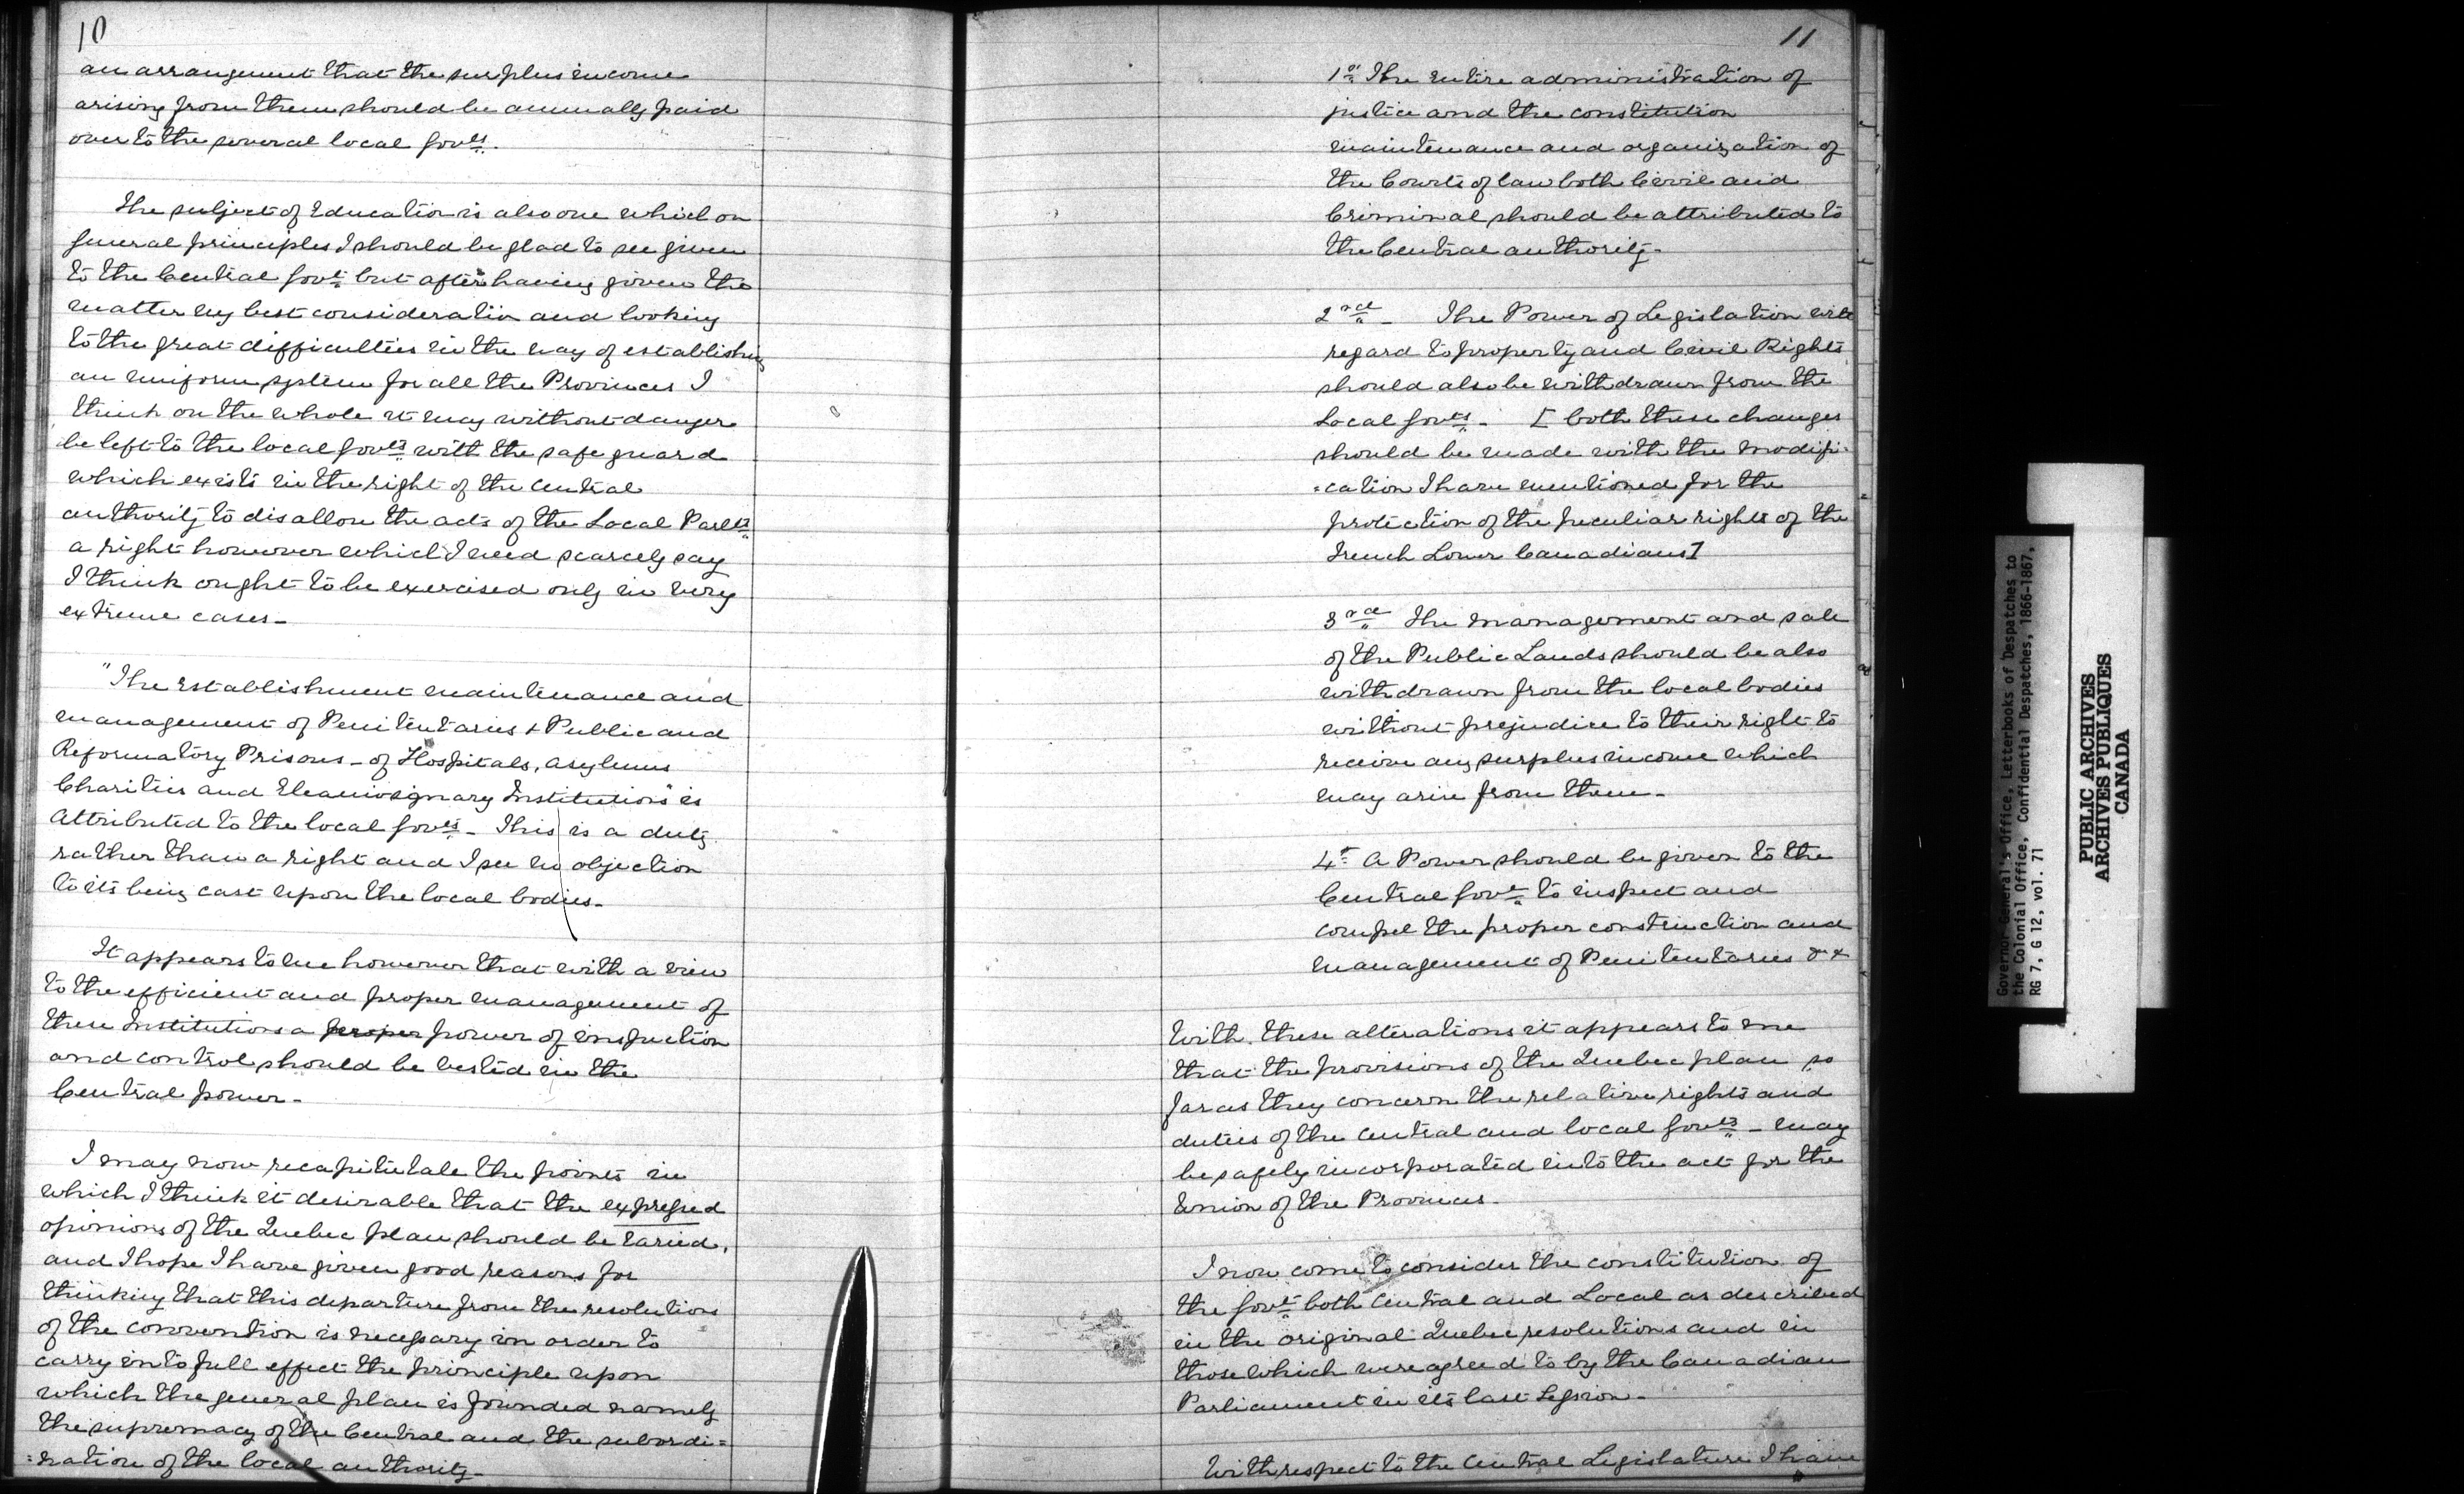 10
an arrangement that the surplus income
arising from them should be annually paid
over to the several local Govts.
The subject of Education is also one which on
general principles I should be glad to see given
to the Central Govt but after having given the
matter my best consideration and looking
to the great difficulties in the way of establishing
an uniform system for all the Provinces I
think on the whole it may without danger
be left to the local Govts with the safe guard
which exists in the right of the Central
authority to disallow the acts of the Local Parlts
a right however which I need scarcely say
I think ought to be exercised only in very
extreme cases -
"The establishment maintenance and
management of Penitentaries & Public and
Reformatory Prisons - of Hospitals, Asylums
Charities and Eleamosynary Institutions" is
attributed to the local Govts - This is a duty
rather than a right and I see no objection
to its being cast upon the local bodies -
It appears to me however that with a view
to the efficient and proper management of
these Institutions a proper power of inspection
and control should be vested in the
Central power -
I may now recapitulate the points in
which I think it desirable that the expressed
opinions of the Quebec plan should be varied,
and I hope I have given good reasons for
thinking that this departure from the resolutions
of the convention is necessary in order to
carry into full effect the principle upon
which the general plan is founded namely
the supremacy of the Central and the subordi=
=nation of the local authority -
11
1st The entire administration of
justice and the constitution
maintenance and organization of
the Courts of law both Civil and
Criminal should be attributed to
the Central authority -
2nd - The Power of Legislation with
regard to property and Civil Rights
should also be withdrawn from the
Local Govts - [both these changes
should be made with the modifi=
=cation I have mentioned for the
protection of the peculiar rights of the
French Lower Canadians]
3rd The management and sale
of the Public Lands should be also
withdrawn from the local bodies
without prejudice to their right to
receive any surplus income which
may arise from them -
4t A Power should be given to the
Central Govt to inspect and
compel the proper construction and
management of Penitentaries &&
With these alterations it appears to me
that the provisions of the Quebec plan so
far as they concern the relative rights and
duties of the Central and local Govts - may
be safely incorporated into the act for the
Union of the Provinces -
I now come to consider the constitution of
the Govt both Central and Local as described
in the original Quebec resolutions and in
those which were agreed to by the Canadian
Parliament in its last Session -
With respect to the Central Legislature I have
Governor General's Office, Letterbooks of Despatches to
the Colonial Office, Confidential Despatches, 1866-1867,
RG 7, G 12, vol. 71
PUBLIC ARCHIVES
ARCHIVES PUBLIQUES
CANADA